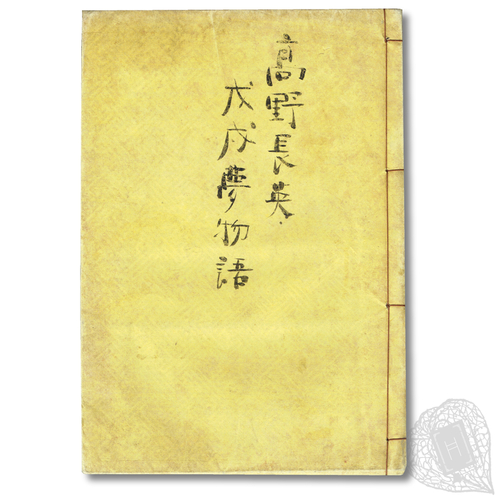 高野長英
戊戌夢物語